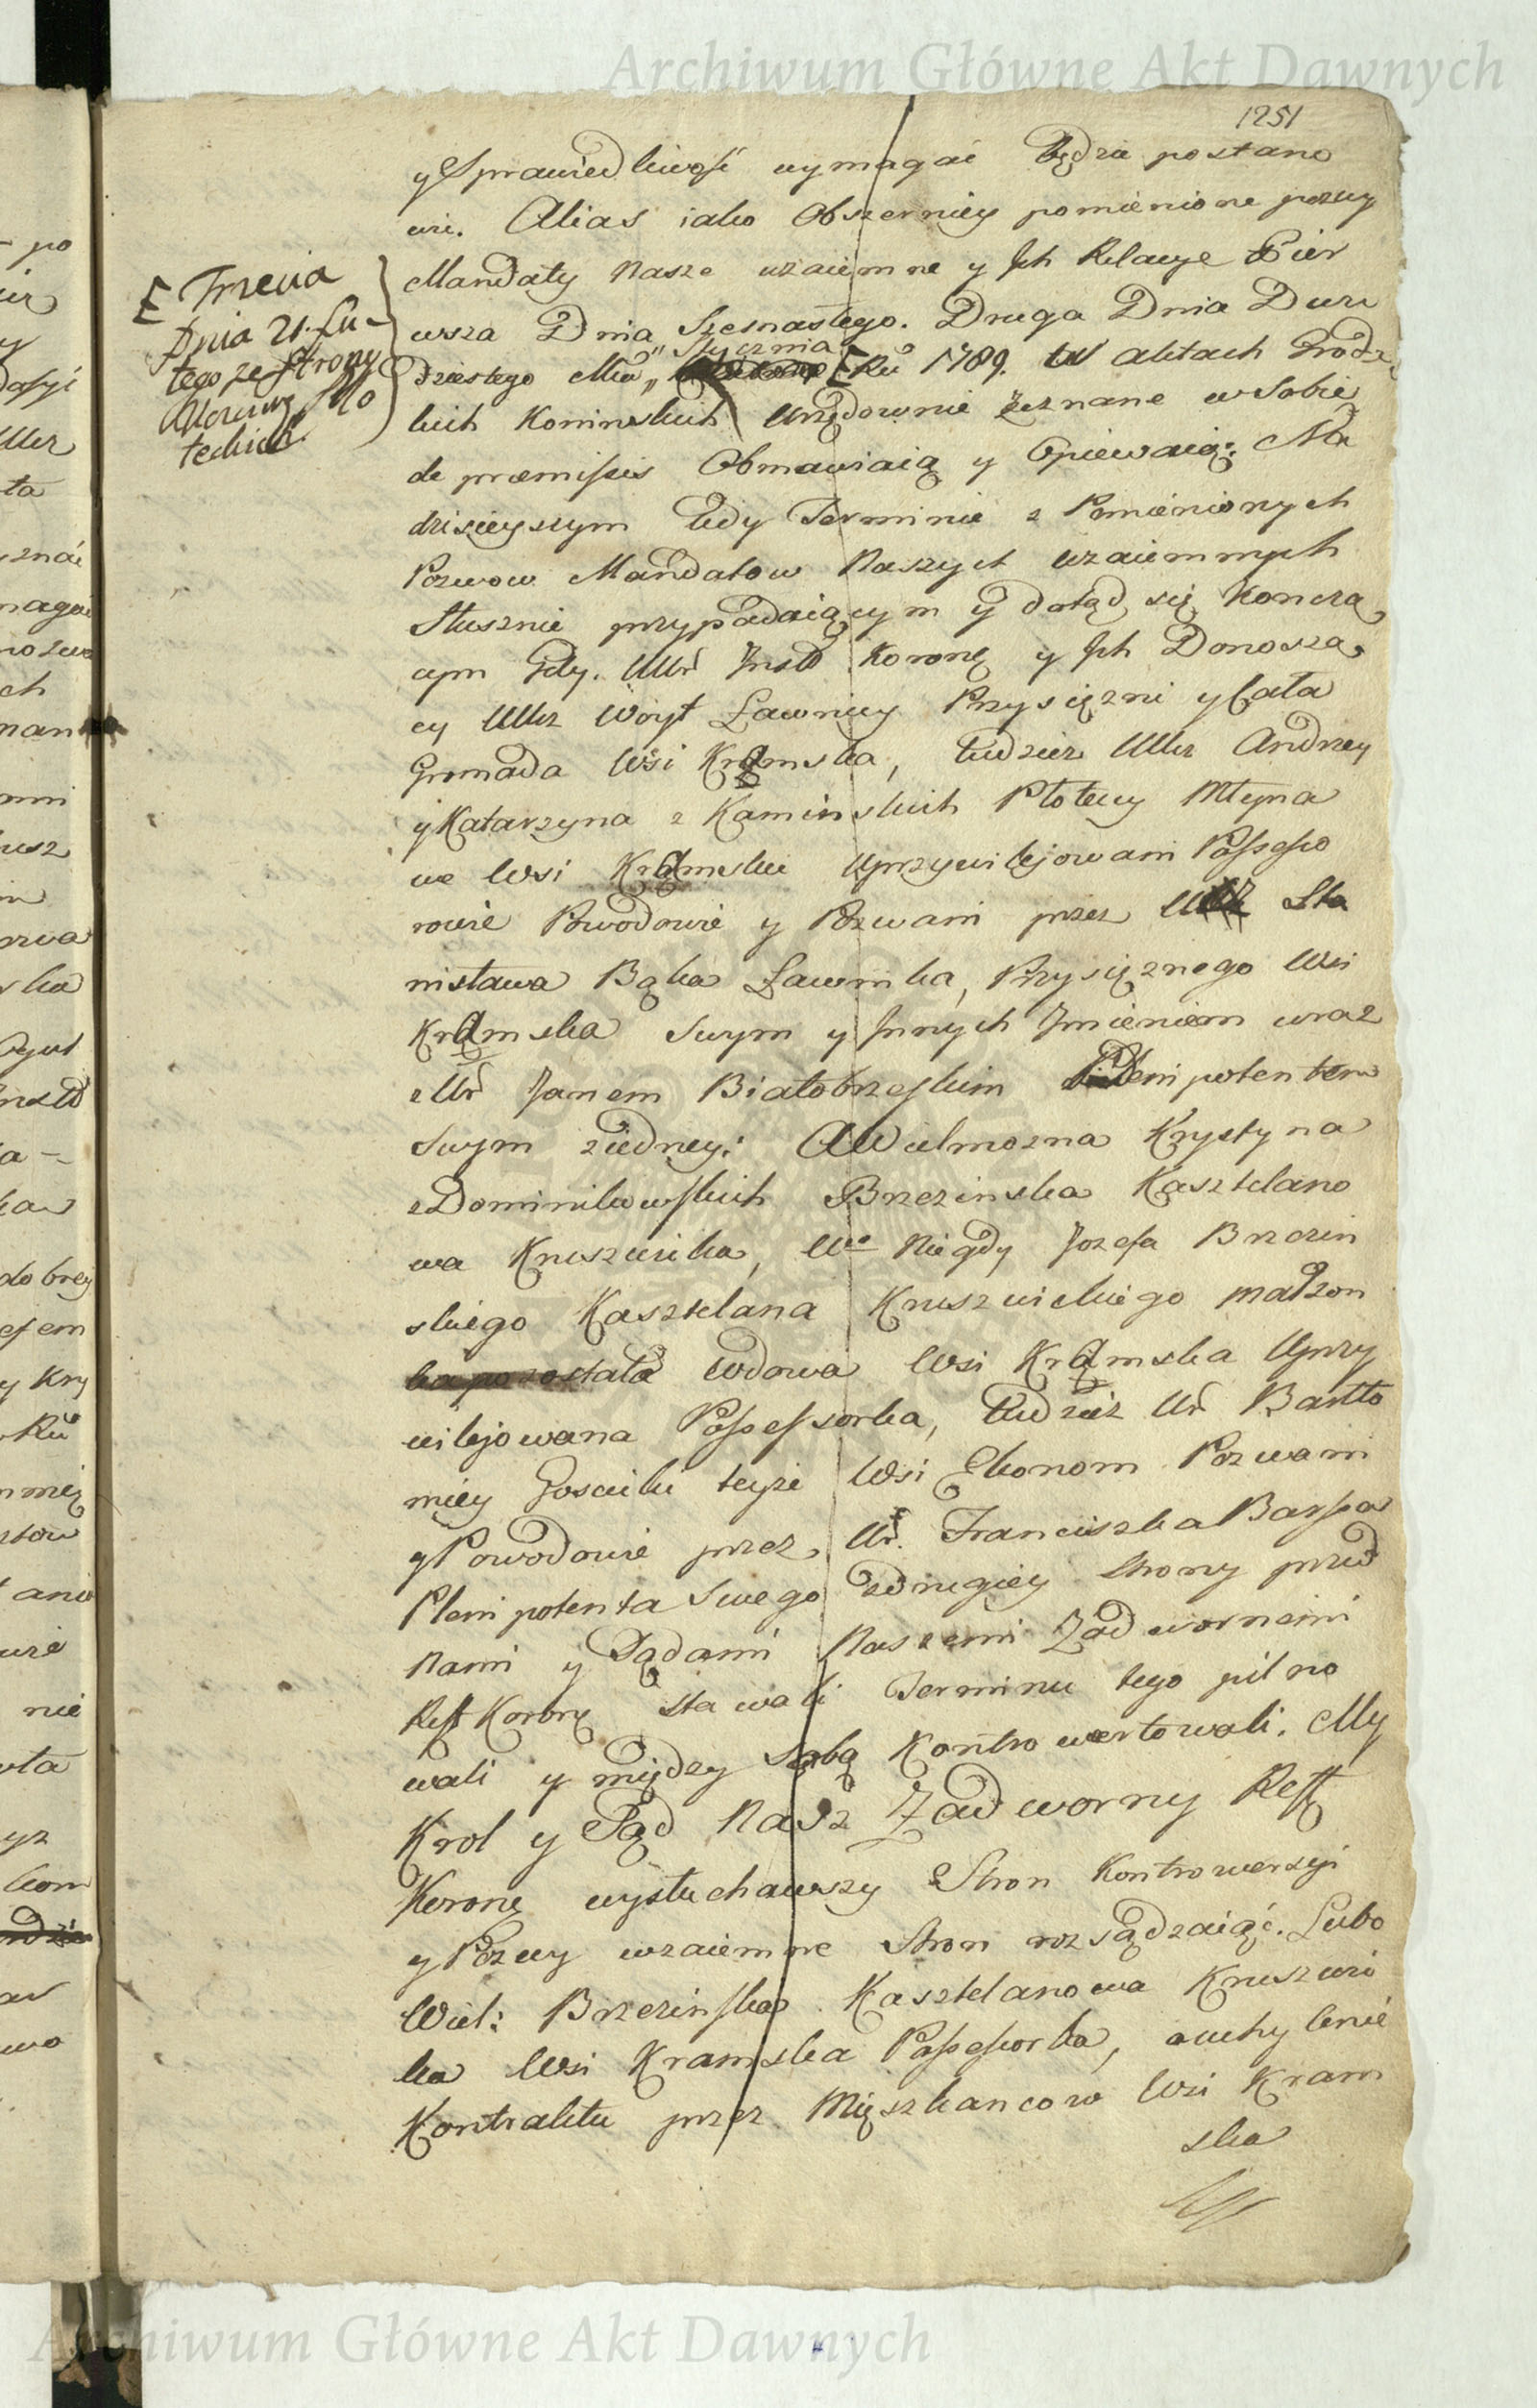 Archiwum Główne Akt Dawnych
1251
y Sprawiedliwość wymagać będzie postano
wi. Alias iako Obszerniey pomienione pozwy
Mandaty Nasze wzaiemne y Ich Relacye Pier
wsza Dnia Szesnastego. Druga Dnia Dwu
Stycznia
dziestego Mca [Ru 1789. W aktach Grodz
kich Koninskich Urzędownie zeznane w Sobie
[Trzecia
Dnia 21. Lu-
tego ze Strony
Młoteckich
de præmissis Obmawiaią y Opiewaią: Na
dzisieyszym tedy Terminie z Pomienionych
Pozwow Mandatow Naszych wzaiemnych
słusznie przypadaiącym y dotąd się Koncza
cym Gdy. Ur Inst Koronę y Ich Donoszą
cy Ucz Woyt Ławnicy Przysięzni y Cała
Gromada Wsi Kramska, tudzież Ucz Andrzey
y Katarzyna z Kaminskich Młyna
we Wsi Kramsku Uprzywilejowani Possesso
rowie Powodowie y Pozwani przez Sta
nisława Bąka Ławnika, Przysięznego Wsi
Kramska Swym y Innych Imieniem wraz
z Ur Janem Białobrzeskim Plenipotentem
Swym ziedney: A Wielmozna Krystyna
z Dominikowskich Brzezinska Kasztelano
wa Kruszwicka, Wo Niegdy Jozefa Brzezin
skiego Kasztelana Kruszwickiego małżon
ka pozostała wdowa Wsi Kramska Uprzy
wilejowana Possessorka, tudzież Ur Bartło
miey Gościcki teyze Wsi Ekonom Pozwani
y Powodowie przez Ur. Franciszka Barssa
Plenipotenta Swego z drugiey Strony przed
Nami y Sądami Naszemi Zadwornemi
Reff Koronę stawali Terminu tego pilno
wali y między sobą Kontrowertowali. My
Krol y Sąd Nasz Zadworny Reff
Koronę wysłuchawszy Stron Kontrowersyi
y Pozwy wzaiemne Stron rozsądzaiąc. Lubo
Wiel: Brzezinska Kasztelanowa Kruszwic
ka Wsi Kramska Possessorka, o uchylenie
Kontraktu przez Mięszkancow Wsi Kram
ska
Archiwum Główne Akt Dawnych